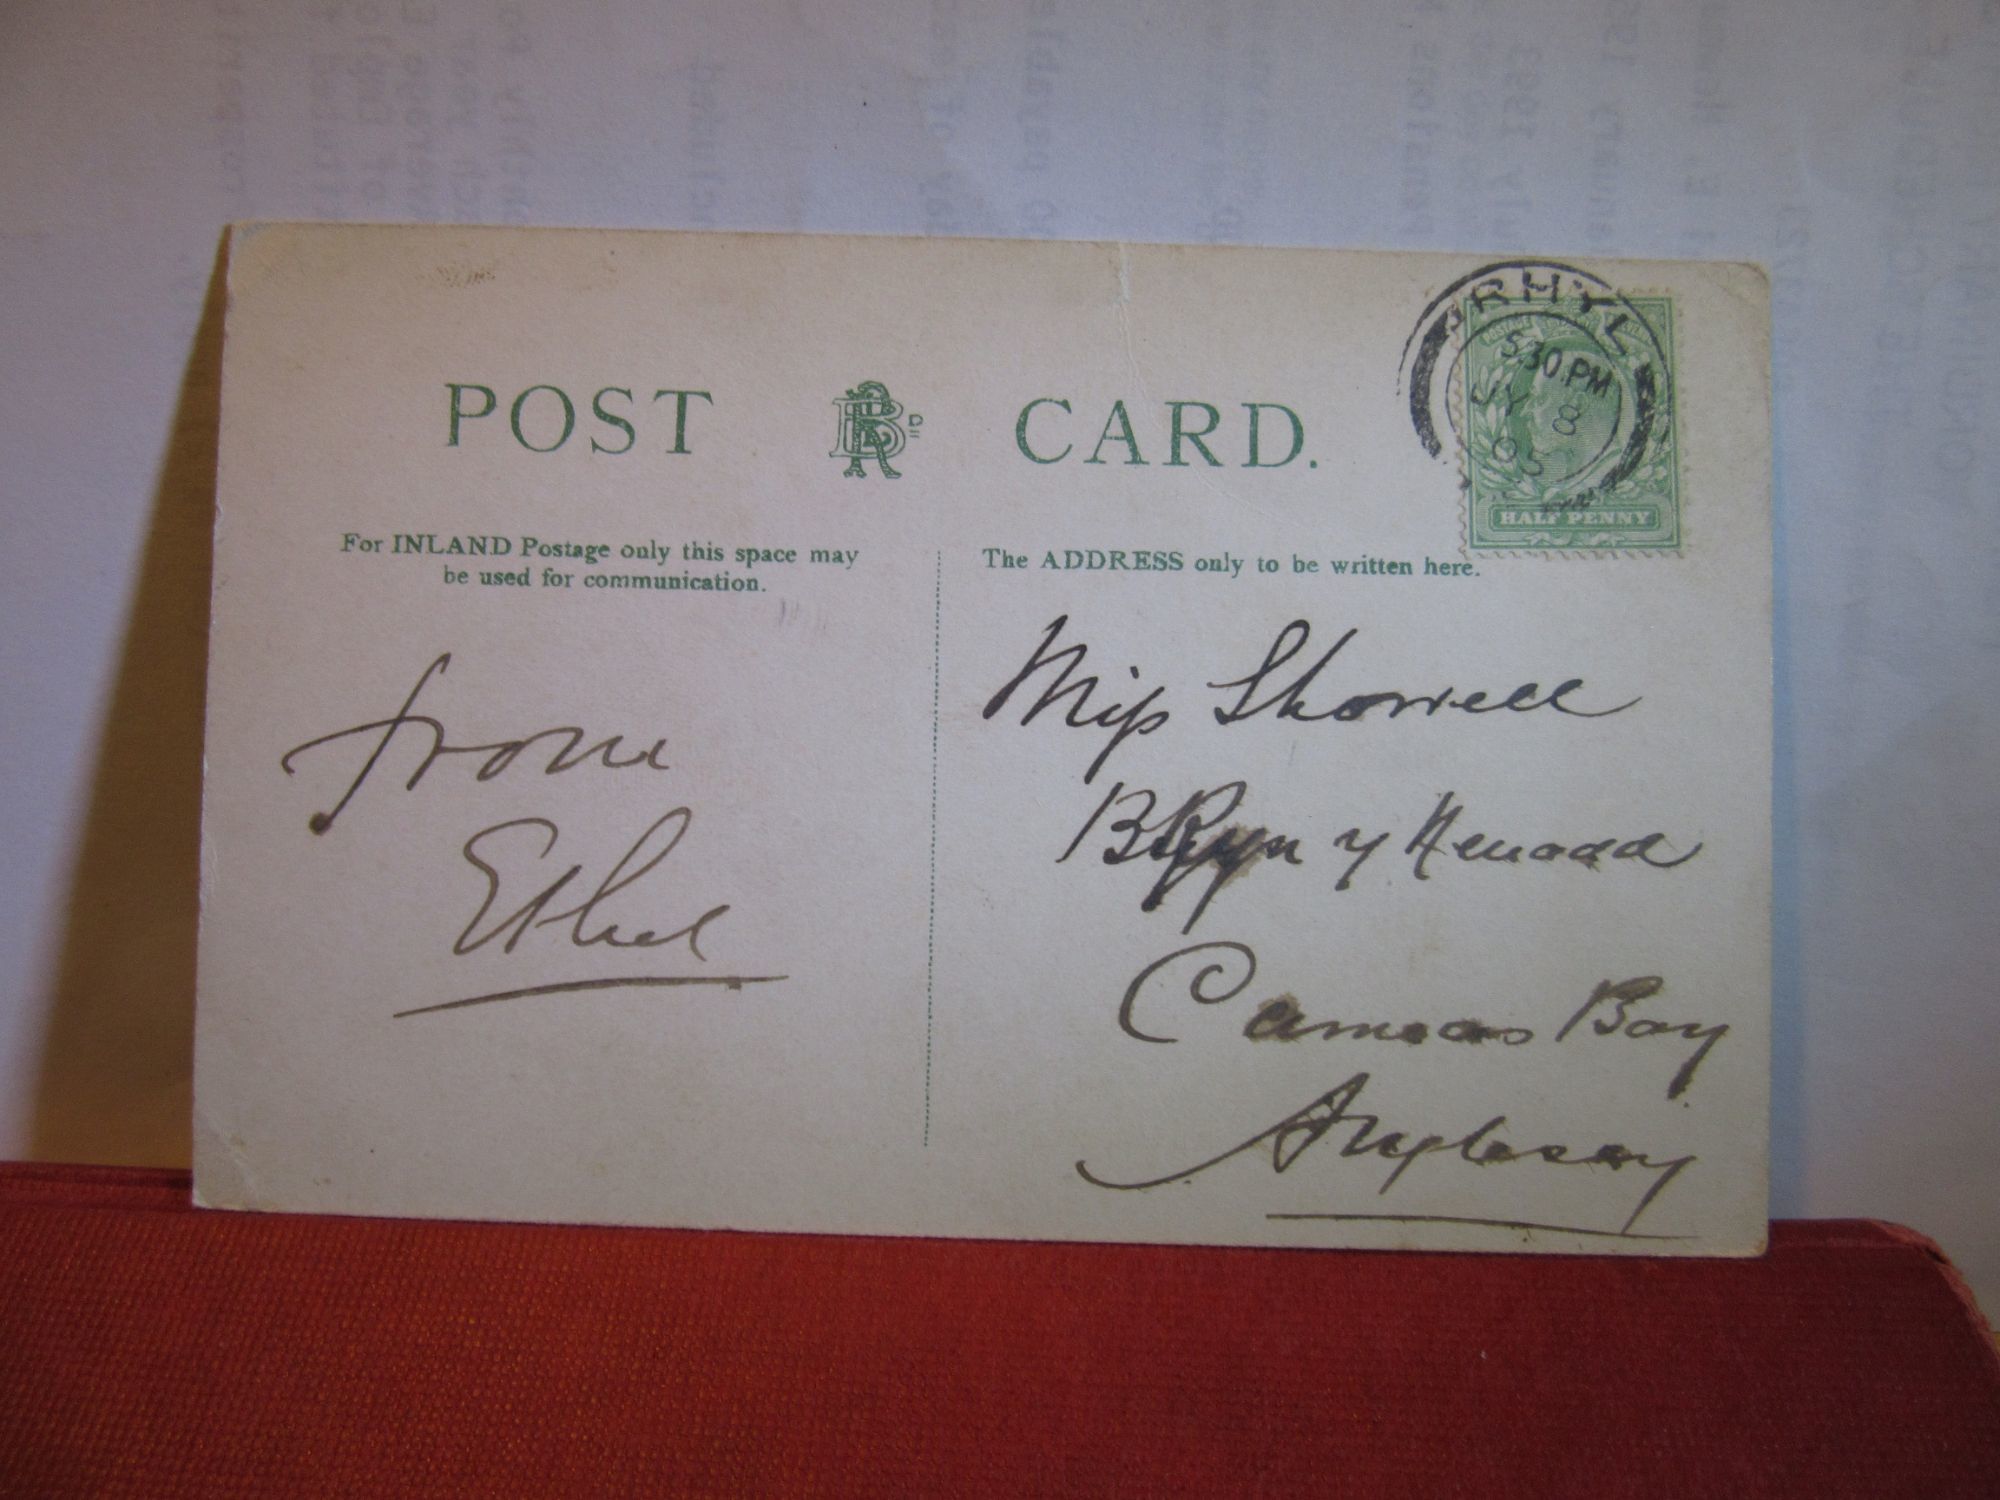 POST CARD.
RHYL
5.30 PM
JY 8
05
HALF PENNY
For INLAND Postage only this space may
be used for communication.
The ADDRESS only to be written here.
from
Ethel
Miss Showell
Bryn y
Cameas Bay
Anglesey